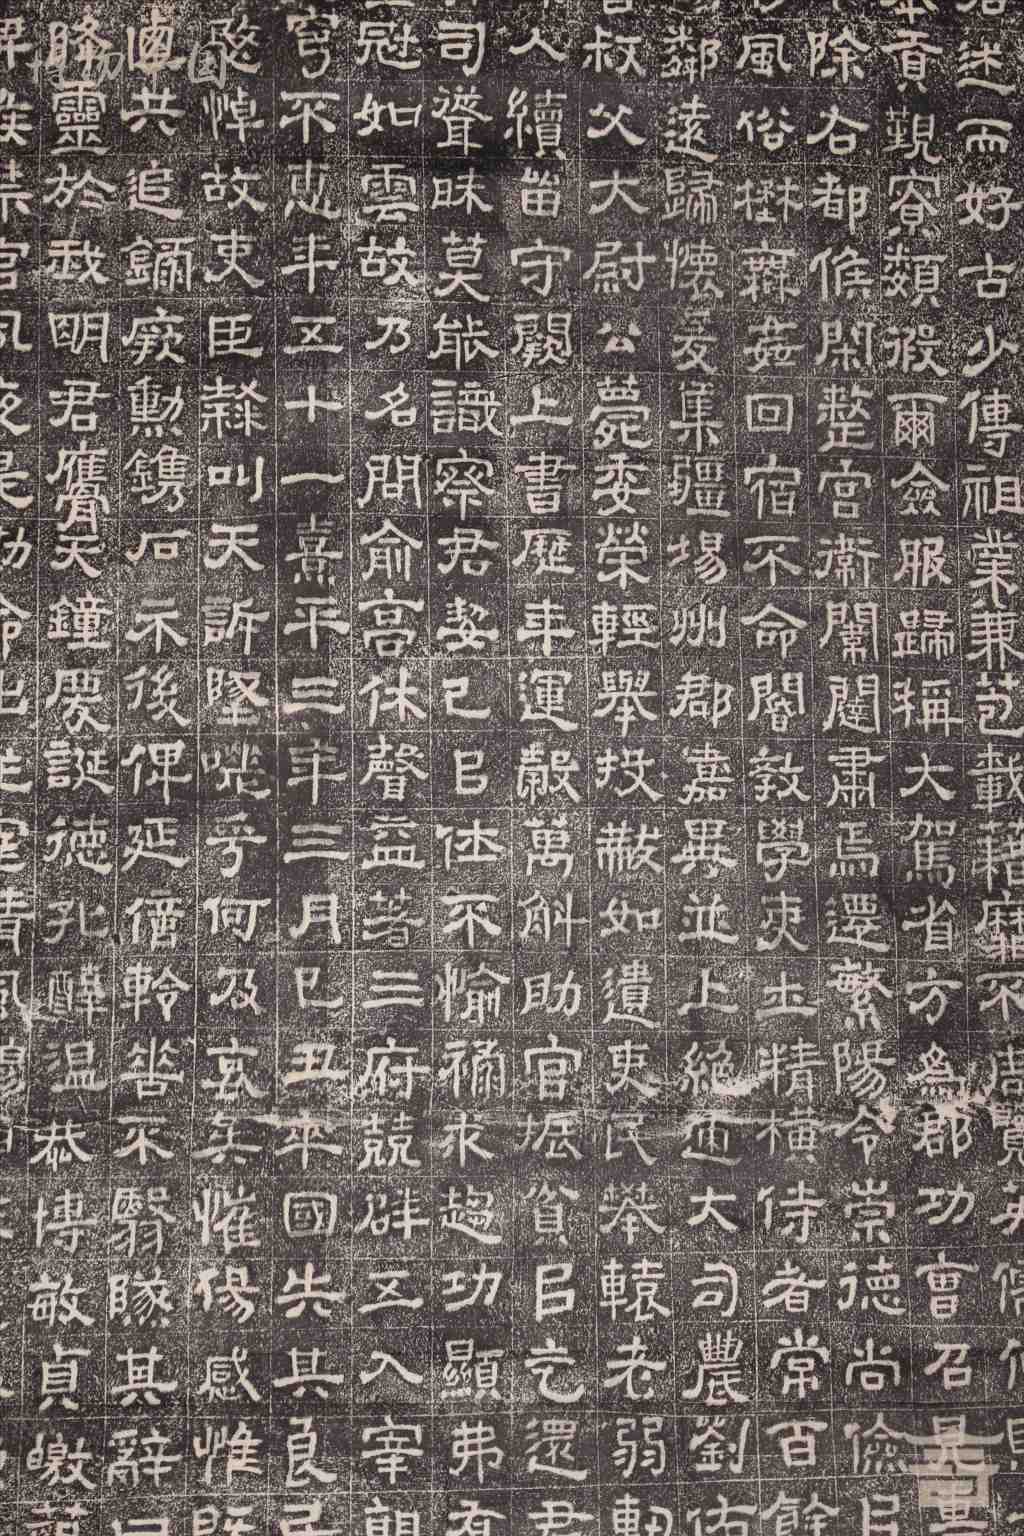 述而好古少傳祖業兼苞載藉靡不周覽英儒
貢覲寮類假爾僉服歸稱大駕省方為郡功曹召見
除右都候閑整宮衛闈闥肅焉遷繁陽令崇德尚儉
風俗楙姦回宿不命閽教學吏士精橫侍者常百餘
鄰遠歸懷集疆埸州郡嘉異並上絕大司農劉佑
叔父大尉公薨委榮輕舉投黻如遺吏民攀轅老弱軔
人續畄守闕上書歷年運穀萬斛助官振貧㠯乞還君
司聳昧莫能識察君絜己㠯仕不愉祿求趨功顯弗有
冠如雲故乃名問俞高休聲益著三府競辟五入宰朝
穹不惠年五十一熹平三年三月己丑卒國失其良
愍悼故吏臣隸叫天訴墜乎何及哀矣惟傷感惟
共追厥勳鐫石示後俾延不翳隊其辭曰
降靈於我明君膺天鐘慶誕德孔醇温恭博敏貞皦